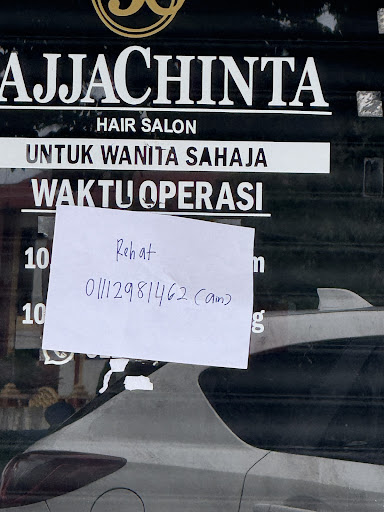 AJJACHINTA
HAIR SALON
UNTUK WANITA SAHAJA
WAKTU OPERASI
Rehat
01112981462 (am)
10
m
10
g